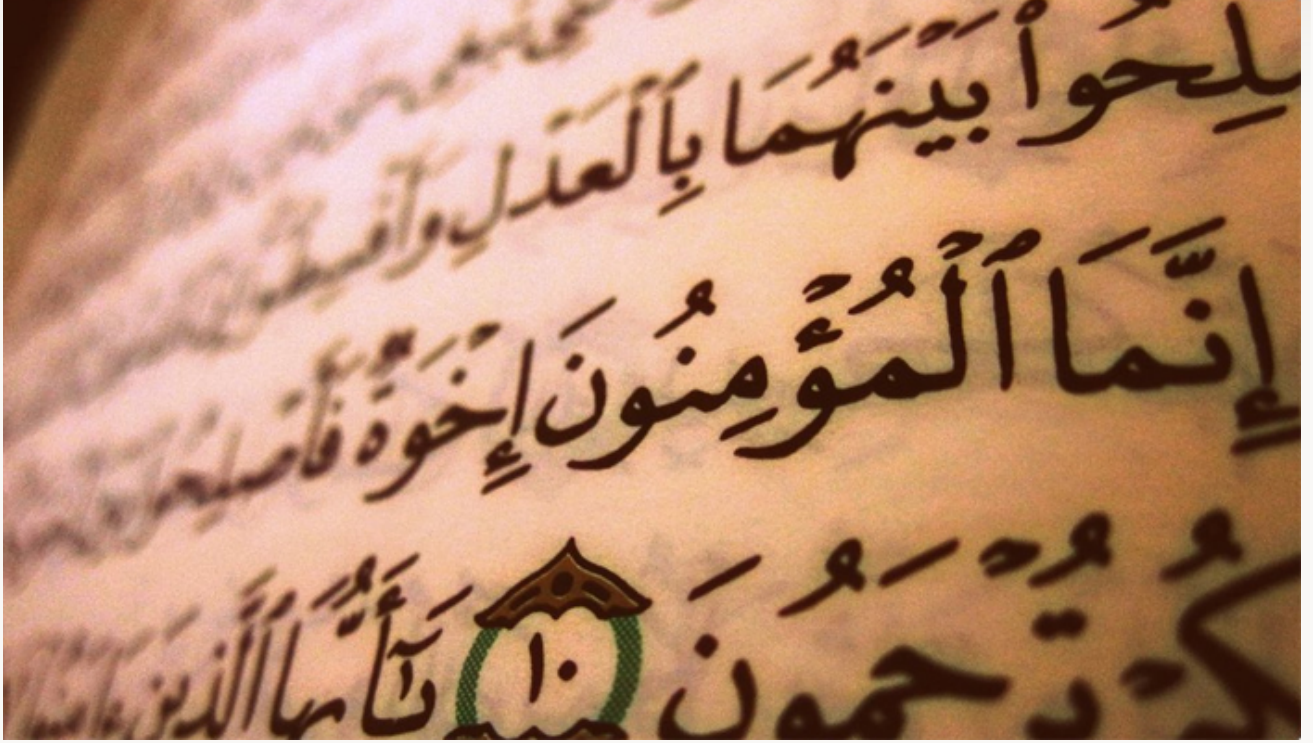 ـلِحُوا۟ بَيْنَهُمَا بِٱلْعَدْلِ وَأَقْسِطُوٓا۟
إِنَّمَا ٱلْمُؤْمِنُونَ إِخْوَةٌ فَأَصْلِحُوا۟
ـكُمْ تُرْحَمُونَ ١٠ يَٰٓأَيُّهَا ٱلَّذِينَ ءَامَنُوا۟